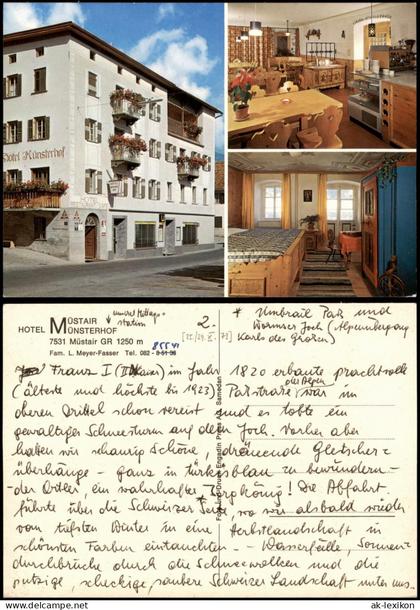 Hotel Münsterhof
HOTEL MÜSTAIR
MÜNSTERHOF
7531 Müstair GR 1250 m
Fam. L. Meyer-Fasser Tel. 082 - 8 51 36
station
2.
* Umbrail Paß und
Wormser Joch (Alpenübergang
Karls des Großen)
Franz I im Jahr 1820 erbaute prachtvolle
(älteste und höchste bis 1923) Paßstraße, war im
oberen Drittel schon vereist und es tobte ein
gewaltiger Schneesturm auf dem Joch. Vorher aber
hatten wir schaurig schöne, dräuende Gletscher=
überhänge - ganz in türkisblau zu bewundern -
- der Ortler, ein wahrhafter Bergkönig! Die Abfahrt
führte über die Schweizer Seite, wo wir alsbald wieder
vom tiefsten Winter in eine Herbstlandschaft in
schönsten Farben eintauchten - Wasserfälle, Sonnen=
durchbrüche durch die Schneewolken und die
putzige, scheckige, saubere Schweizer Landschaft unter uns.
ak-lexikon
© ak-lexikon